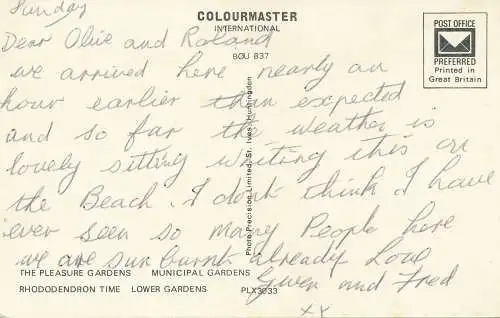 Sunday
COLOURMASTER
INTERNATIONAL
BOU 837
POST OFFICE
PREFERRED
Printed in
Great Britain
Dear Olive and Roland
we arrived here nearly an
hour earlier than expected
and so far the weather is
lovely sitting writing this on
the Beach. I dont think I have
ever seen so many People here
we are sun burnt already Love
Gwen and Fred
xx
Photo Precision Limited, St. Ives, Huntingdon
THE PLEASURE GARDENS MUNICIPAL GARDENS
RHODODENDRON TIME LOWER GARDENS PLX3033